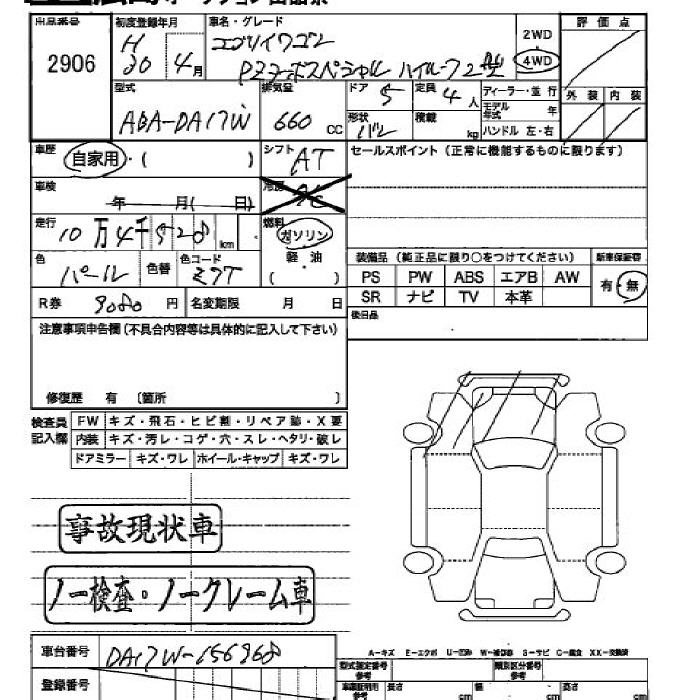 出品番号 初度登録年月 車名・グレード 2WD 評価点
2906 H20 4月 エブリイワゴン 4WD
PZターボスペシャル ハイルーフ2型
型式 排気量 ドア 5 定員 4人 ディーラー・並行 外装 内装
ABA-DA17W 660 CC モデル年式 年
形状 バン 積載 kg ハンドル 左・右
車歴 自家用・( ) シフト AT セールスポイント(正常に機能するものに限ります)
車検 年 月(日) 冷房
走行 10万4千528km 燃料 ガソリン
軽油
( )
色 パール 色替 色コード Z7T 装備品(純正品に限り○をつけてください) 新車保証書
PS PW ABS エアB AW 有・無
R券 9080円 名変期限 月 日 SR ナビ TV 本革
注意事項申告欄(不具合内容等は具体的に記入して下さい) 後日品
修復歴 有 〔箇所 〕
検査員記入欄 FW キズ・飛石・ヒビ割・リペア跡・X要
内装 キズ・汚レ・コゲ・穴・スレ・ヘタリ・破レ
ドアミラー キズ・ワレ ホイール・キャップ キズ・ワレ
事故現状車
ノー検査・ノークレーム車
車台番号 DA17W-156968 A-キズ E-エクボ U-凹み W-補修跡 S-サビ C-腐食 XX-交換済
型式指定番号 参考 類別区分番号 参考
登録番号 車庫証明用 参考 長さ cm 幅 cm 高さ cm